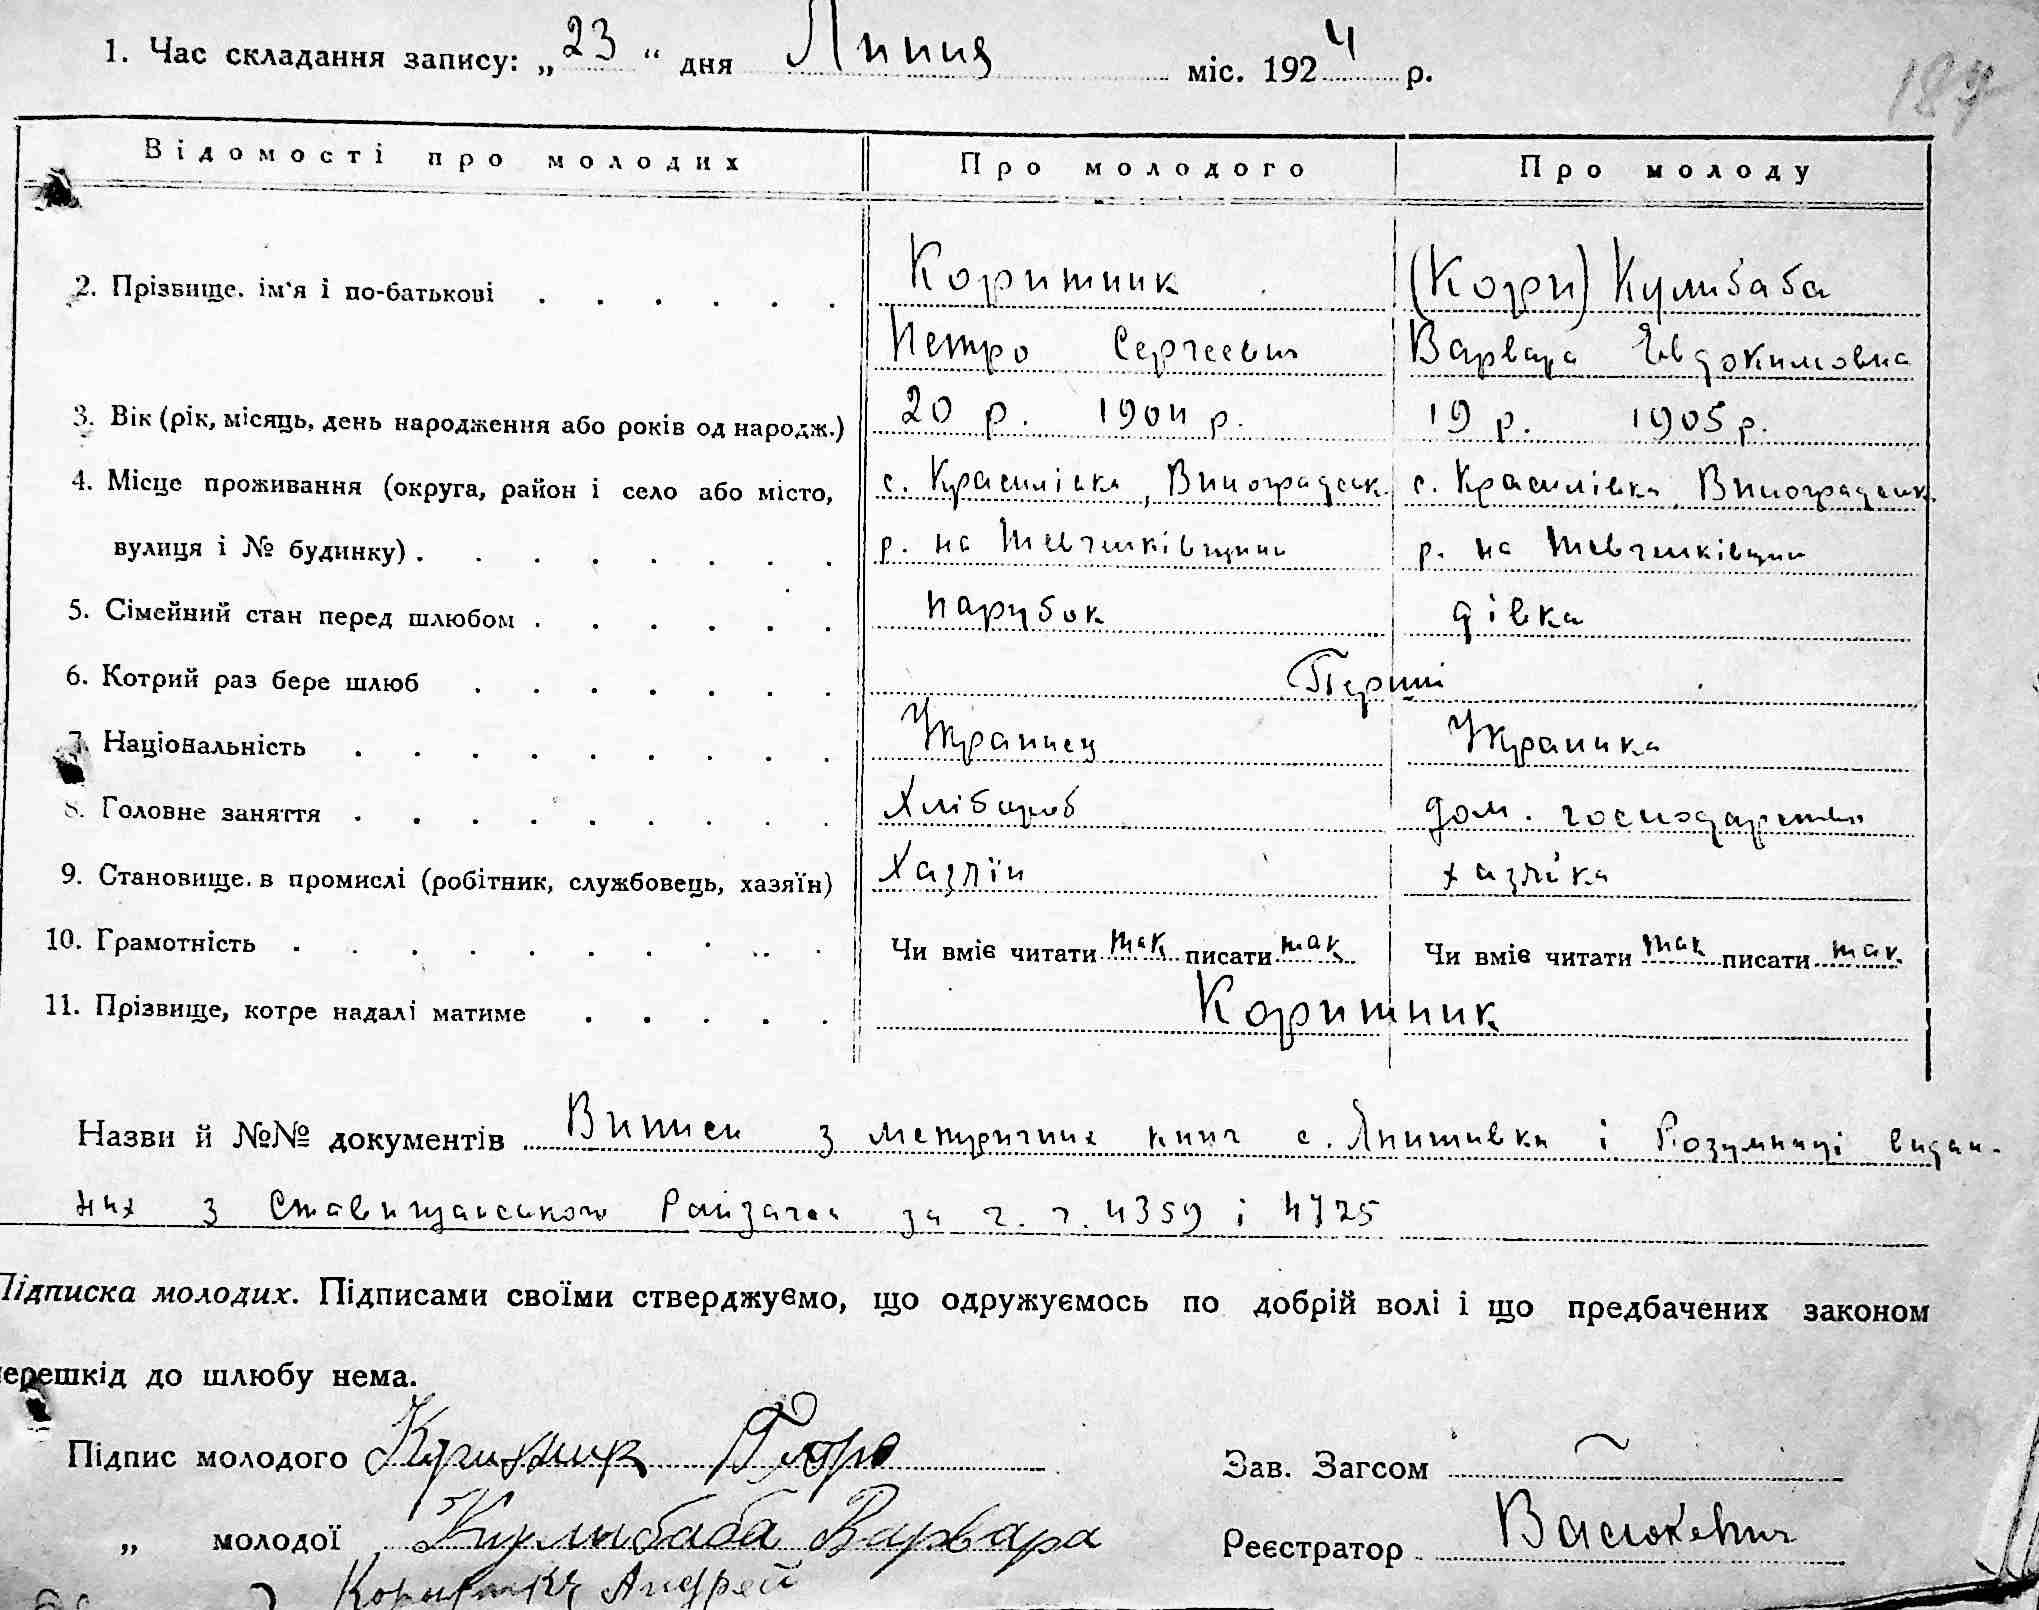 1. Час складання запису: „23“ дня Липця міс. 1924 р.
187
Відомості про молодих Про молодого Про молоду
2. Прізвище. ім'я і по-батькові Коритник (Кори) Кулибаба
Петро Сергеевич Варвара Євдокимовна
3. Вік (рік, місяць, день народження або років од народж.) 20 р. 1904 р. 19 р. 1905 р.
4. Місце проживання (округа, район і село або місто, с. Красилівка, Виноградськ. с. Красилівка, Виноградськ.
вулиця і № будинку) р. на Шевченківщині р. на Шевченківщині
5. Сімейний стан перед шлюбом парубок дівка
6. Котрий раз бере шлюб Перший
7. Національність Украинец Украинка
8. Головне заняття Хлібороб дом. господарство
9. Становище в промислі (робітник, службовець, хазяїн) Хазяїн хазяйка
10. Грамотність Чи вміє читати так писати так Чи вміє читати так писати так
11. Прізвище, котре надалі матиме Коритник
Назви й №№ документів Виписи з метричних книг с. Янишівки і Розумниці видан-
них з Ставищанського Райзагса за ч. ч. 4359 і 4725
Підписка молодих. Підписами своїми стверджуємо, що одружуємось по добрій волі і що предбачених законом
перешкід до шлюбу нема.
Підпис молодого Коритник Петро Зав. Загсом
„ молодої Кулибаба Варвара Реєстратор Васюкевич
Андрей